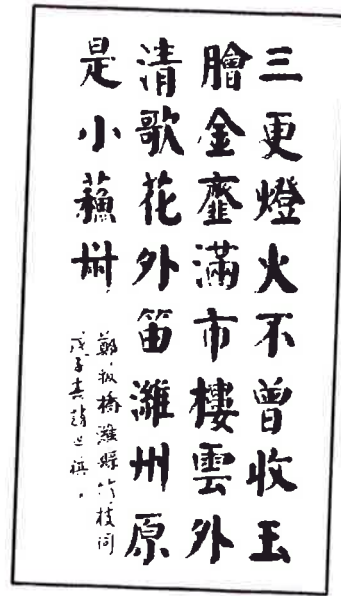 三更燈火不曾收玉
膾金齏滿市樓雲外
清歌花外笛濰州原
是小蘓州
鄭板橋濰縣竹枝詞
戊子春趙